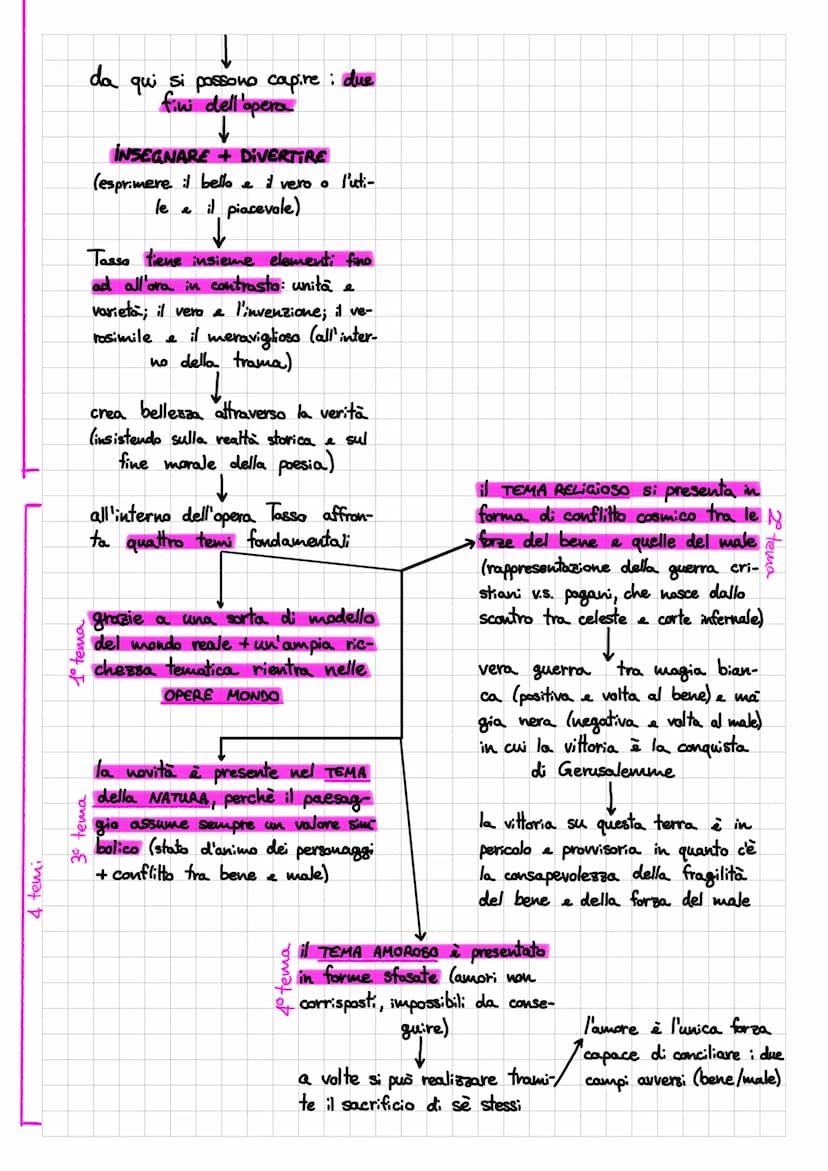 da qui si possono capire i due
fini dell'opera
INSEGNARE + DIVERTIRE
(esprimere il bello e il vero o l'uti-
le e il piacevole)
Tasso tiene insieme elementi fino
ad all'ora in contrasto: unità e
varietà; il vero e l'invenzione; il ve-
rosimile e il meraviglioso (all'inter-
no della trama)
crea bellezza attraverso la verità
(insistendo sulla realtà storica e sul
fine morale della poesia)
all'interno dell'opera Tasso affron-
ta quattro temi fondamentali
4 temi
1° tema
grazie a una sorta di modello
del mondo reale + un'ampia ric-
chezza tematica rientra nelle
OPERE MONDO
2° tema
il TEMA RELIGIOSO si presenta in
forma di conflitto cosmico tra le
forze del bene e quelle del male
(rappresentazione della guerra cri-
stiani v.s. pagani, che nasce dallo
scontro tra celeste e corte infernale)
vera guerra tra magia bian-
ca (positiva e volta al bene) e ma
gia nera (negativa e volta al male)
in cui la vittoria è la conquista
di Gerusalemme
la vittoria su questa terra è in
pericolo e provvisoria in quanto c'è
la consapevolezza della fragilità
del bene e della forza del male
3° tema
la novità è presente nel TEMA
della NATURA, perchè il paesag-
gio assume sempre un valore sim
bolico (stato d'animo dei personaggi
+ conflitto tra bene e male)
4° tema
il TEMA AMOROSO è presentato
in forme sfasate (amori non
corrisposti, impossibili da conse-
guire)
a volte si può realizzare trami-
te il sacrificio di sè stessi
l'amore è l'unica forza
capace di conciliare i due
campi avversi (bene/male)